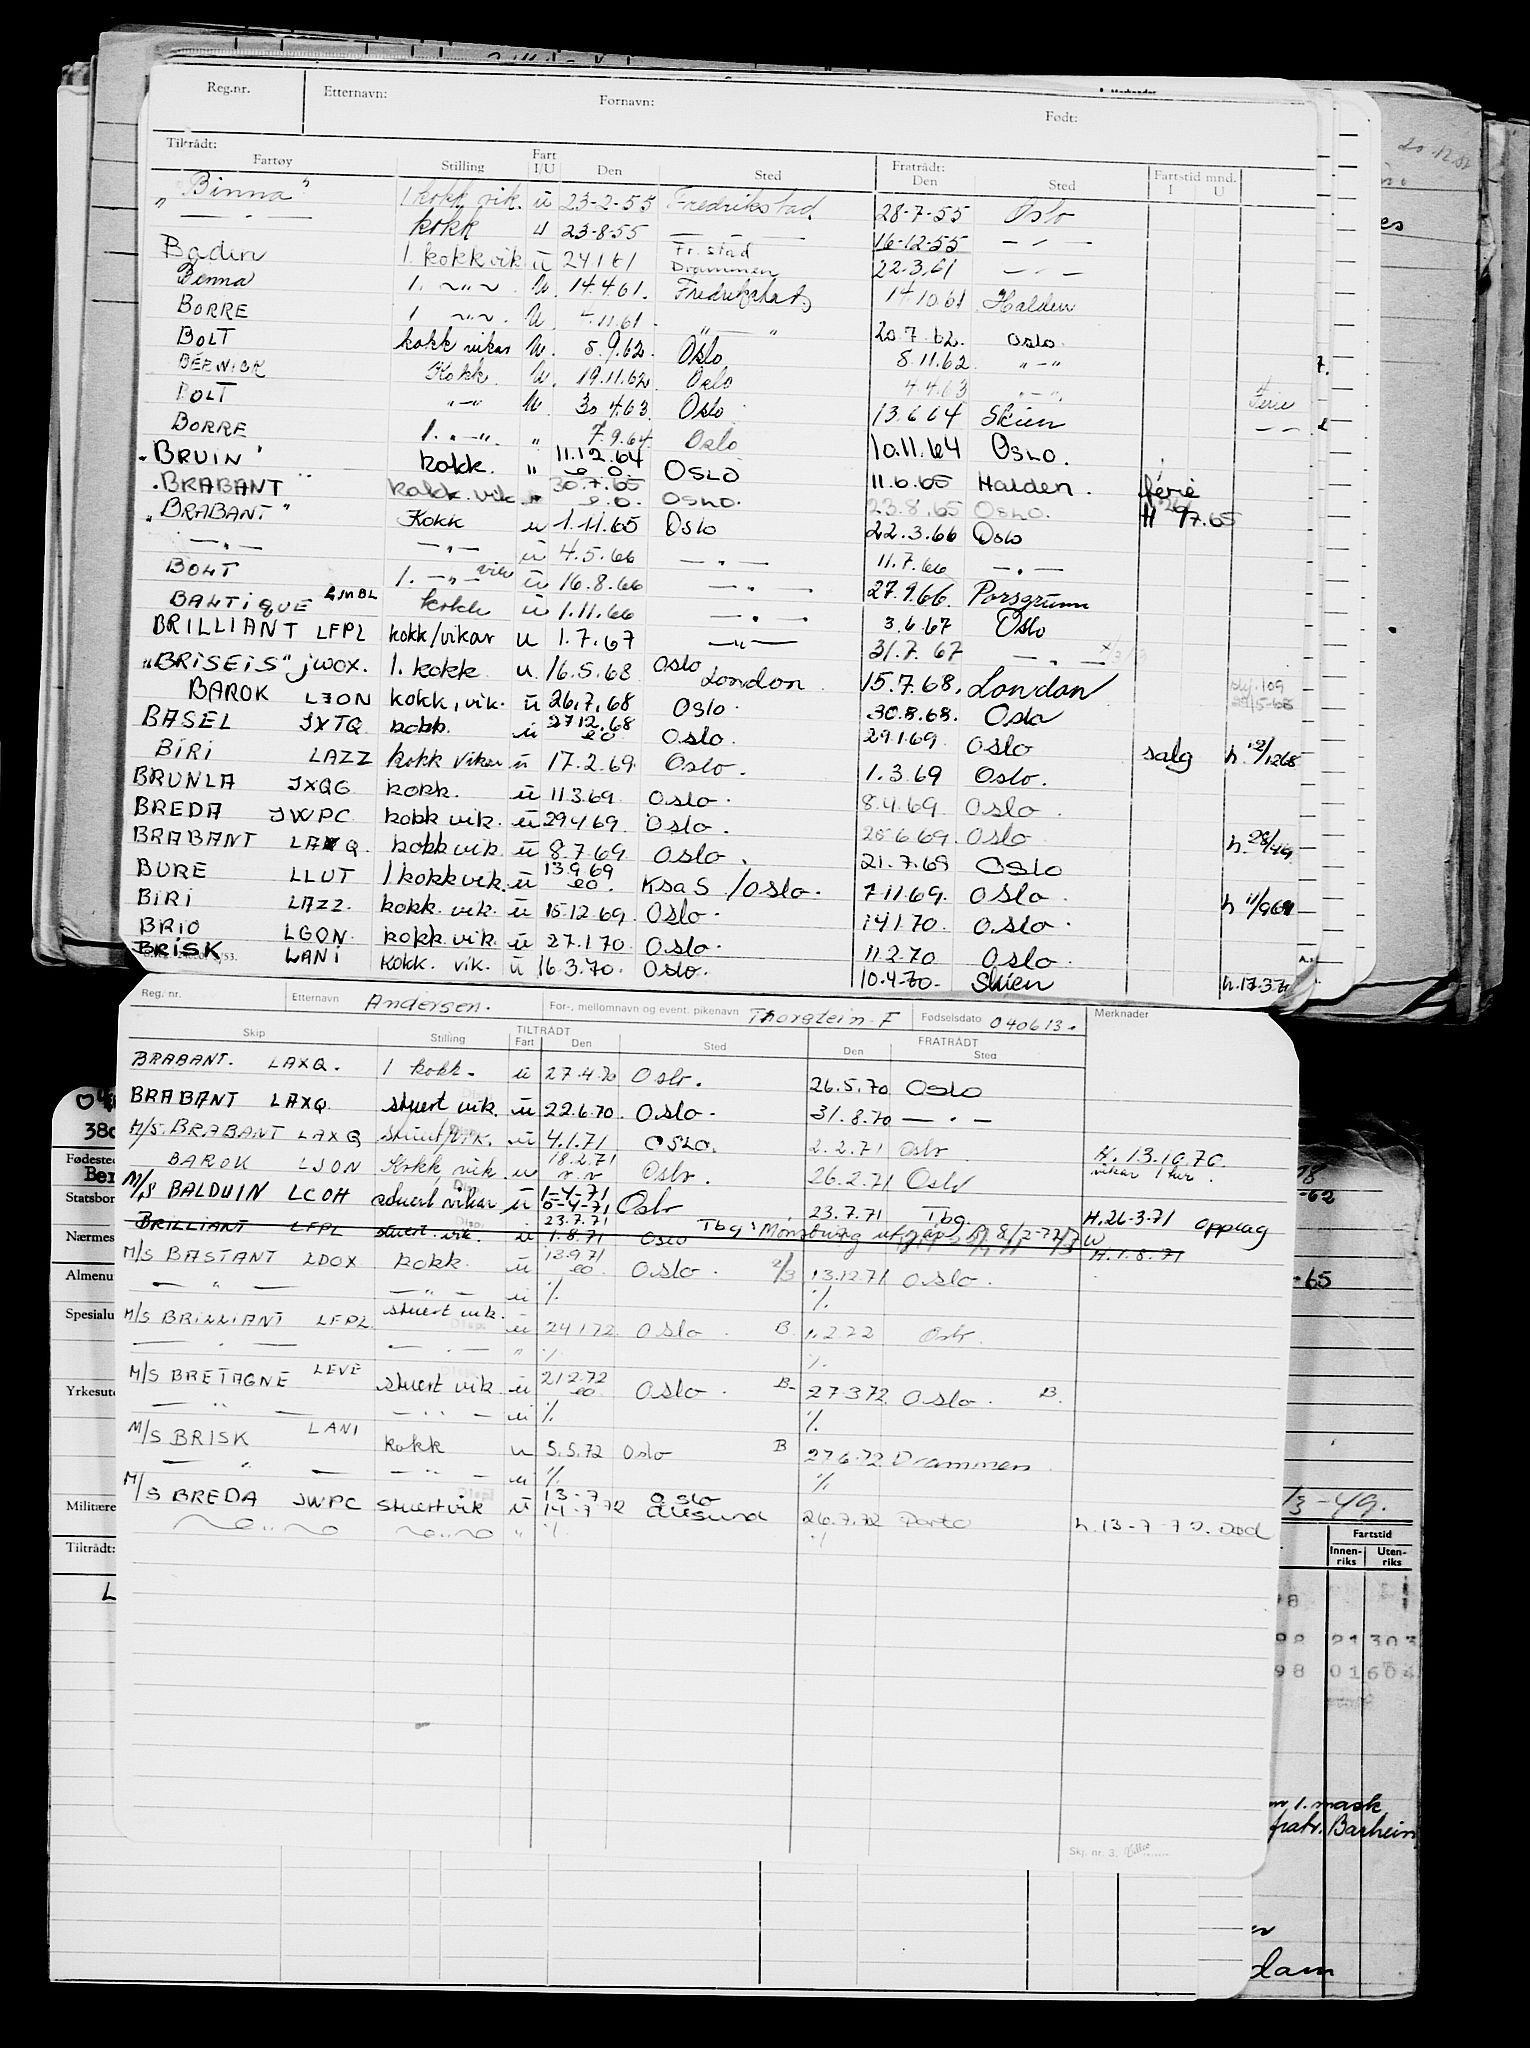 Reg.nr. Etternavn: Fornavn: Født:
Tiltrådt: Fratrådt:
Fartøy Stilling Fart I/U Den Sted Den Sted Fartstid mnd. I U
"Binna" 1 kokk vik. ü 23-2-55 Fredrikstad 28-7-55 Oslo
— " — kokk u 23-8-55 — — 16-12-55 — " —
Baden 1. kokk vik ü 24.1.61 Fr.stad Drammen 22.3.61 — " —
Benna 1. ~"~ U. 14.4.61. Fredrikstad 14.10.61 Halden
BORRE 1 ~"~. U. 11.61. " — " 20.7.62. Oslo.
BOLT kokk vikar U. 5.9.62. Oslo 8.11.62. "—"
BERNICK Kokk. U. 19.11.62. Oslo 4.4.63 "—" Ferie
BOLT "—" U 30 4.63. Oslo 13.6.64 Skien — —
BORRE 1. "—". " 7.9.64. Oslo 10.11.64 OSLO.
"BRUIN" kokk. " 11.12.64 e.o. OSLO 11.6.65 Halden. ferie
"BRABANT" kokk vik " 30.7.65 e.o. OSLO. 23.8.65 OSLO. H 9/7.65
"BRABANT" Kokk u 1.11.65 Oslo 22.3.66 Oslo
— " — — " — ü 4.5.66 — " — 11.7.66 — " —
BOLT 1. — " — vik ü 16.8.66 — " — 27.9.66. Porsgrunn
BALTIQUE LMBL kokk ü 1.11.66 — " — 3.6.67 Oslo
BRILLIANT LFPL kokk/vikar u 1.7.67 — " — 31.7.67 — " —
"BRISEIS" JWOX. 1. kokk u. 16.5.68 Oslo London 15.7.68. London
BAROK LJON kokk, vik. ü 26.7.68 Oslo. 30.8.68. Oslo
BASEL JXTQ kokk. ü 27.12.68 eo Oslo. 29.1.69. Oslo salg h. 12/1268
BIRI LAZZ kokk vikar ü 17.2.69. Oslo. 1.3.69 Oslo.
BRUNLA JXQG kokk. ü 11.3.69. Oslo. 8.4.69 Oslo.
BREDA JWPC kokk vik. ü 29469. Oslo. 20.6.69. Oslo
BRABANT LAXQ. kokk vik ü 8.7.69 Oslo. 21.7.69 Oslo
BURE LLUT 1 kokk vik. ü 13.9.69 eo. Ksa S /Oslo. 7.11.69. Oslo.
BIRI LAZZ. kokk. vik. ü 15.12.69. Oslo. 14.1.70. Oslo.
BRIO LGON. kokk. vik. ü 27.1.70. Oslo. 11.2.70 Oslo.
BRISK LANI kokk. vik. ü 16.3.70. Oslo. 10.4.70. Skien
Reg. nr. Etternavn Andersen. For-, mellomnavn og event. pikenavn Thorstein F Fødselsdato 040613. Merknader
TILTRÅDT FRATRÅDT
Skip Stilling Fart Den Sted Den Sted
BRABANT. LAXQ. 1 kokk. ü 27.4.70 Oslo. 26.5.70 Oslo
BRABANT LAXQ stuert vik. ü 22.6.70. Oslo. 31.8.70 — " —
M/S. BRABANT LAXQ stuert/vik. ü 4.1.71 OSLO. 2.2.71 Oslo H. 13.10.70.
BAROK LJON Kokk, vik u 18.2.71 Oslo. 26.2.71 Oslo vikar 1 tur.
M/S BALDUIN LCOH stuert vikar ü 1-4-71 5-4-71 Oslo 23.7.71 Tbg. H.26-3.71 opplag
BRILLIANT LFPL stuert. vik. ü 23.7.71 1.8.71 Oslo Tbg: H. 1.8.71
M/S BASTANT LDOX kokk. ü 13.9.71 eo. Oslo. 2/3 13.12.71 Oslo.
— " — — " — ü % %
M/S BRILLIANT LFPL. stuert vik. ü 24.1.72 Oslo B. 1.2.72 Oslo.
— " — — " — " % %
M/S BRETAGNE LEVE stuert vik. ü 21.2.72 eo. Oslo. B- 27.3.72. Oslo. B.
— " — — " — ü % %
M/S BRISK LANI kokk u 5.5.72 Oslo B 27.6.72. Drammen.
— " — — " — ü % %
M/S BREDA JWPC stuert vik ü 13-7 14-7 72 Oslo Ålesund 26.7.72 Porto h. 13-7-72. Død
~ " ~ ~ " ~ " % %
Skj. nr. 3.
Fødested
Statsbor
Nærmes
Almenu
Spesialu
Yrkesut
Militære
Tiltrådt:
-62
-65
/3-49.
Fartstid
Innen- riks Uten- riks
98 21303
98 01604
1. mask
fratr. Barhein
dam